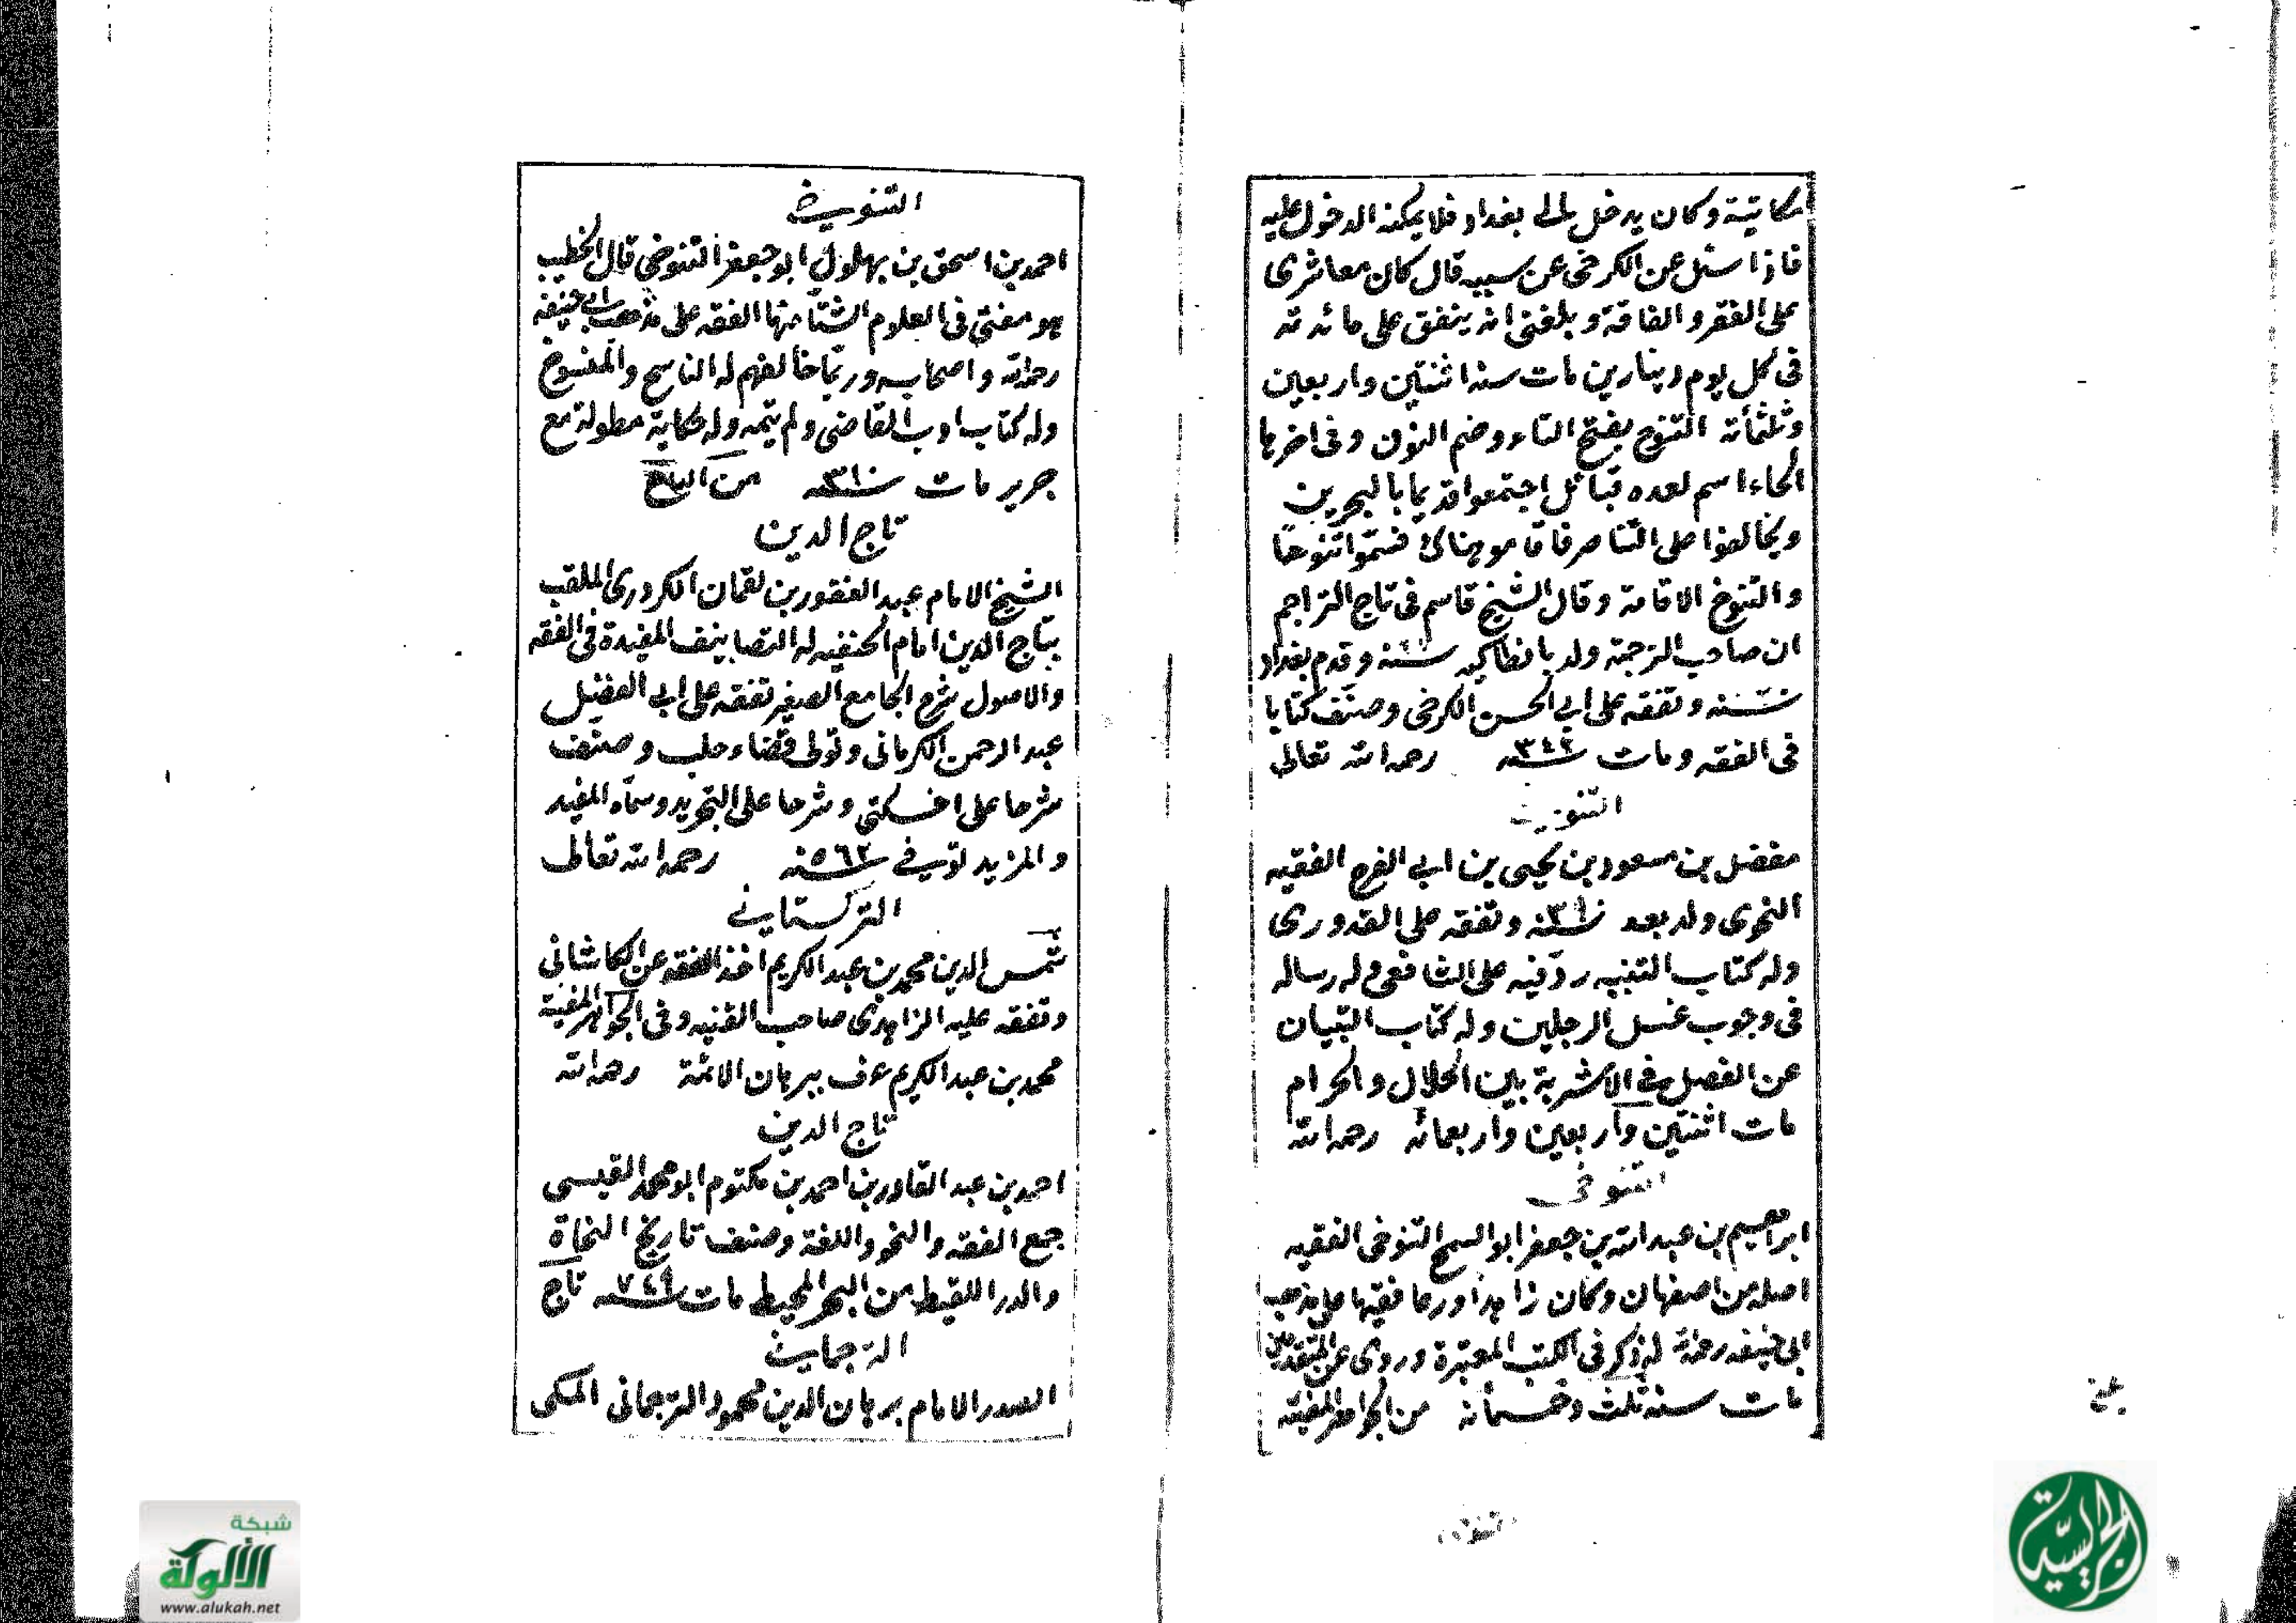 مكاتبته وكان يدخل الى بغداد فلا يمكنه الدخول عليه
فاذا سئل عن الكرخى عن سببه قال كان معاشرى
على الفقر والفاقة و بلغنى انه ينفق على مائدته
فى كل يوم دينارين مات سنة اثنتين واربعين
وثلثمائة التنوخ بفتح التاء وضم النون وفى اخرها
الخاء اسم لعده قبائل اجتمعوا قديما بالبحرين
وتحالفوا على التناصر فاقاموا هناك فسموا تنوخا
والتنوخ الاقامة وقال الشيخ قاسم فى تاج التراجم
ان صاحب الترجمة ولد بانطاكيه سنة وقدم بغداد
سنة وتفقه على ابى الحسن الكرخى وصنف كتابا
فى الفقه ومات سنة ٣٤٢ رحمه الله تعالى
التنوخى
مفضل بن مسعود بن يحيى بن ابى الفرج الفقيه
النحوى ولد بعد سنة وتفقه على القدورى
وله كتاب التنبيه رد فيه على الشافعى وله رساله
فى وجوب غسل الرجلين وله كتاب التبيان
عن الفصل فى الاشربة بين الحلال والحرام
مات اثنتين واربعين واربعمائه رحمه الله
التنوخى
ابراهيم بن عبدالله بن جعفر ابو السمح التنوخى الفقيه
اصله من اصفهان وكان زاهدا ورعا فقيها على مذهب
ابى حنيفه رحمه الله له ذكر فى الكتب المعتبرة وروى عن المتقدمين
مات سنة ثلث وخمسمائة من الجواهر المضيئه
بلغ
التنوخى
احمد بن اسحق بن بهلول ابو جعفر التنوخى قال الخطيب
هو مفتى فى العلوم الشتا منها الفقه على مذهب ابى حنيفه
رحمه الله واصحابه وربما خالفهم له الناسخ والمنسوخ
وله كتاب ادب القاضى ولم يتمه وله حكاية مطولة مع
جرير مات سنة من التاج
تاج الدين
الشيخ الامام عبد الغفور بن لقمان الكردرى الملقب
بتاج الدين امام الحنفيه له التصانيف المفيدة فى الفقه
والاصول شرح الجامع الصغير تفقه على ابى الفضل
عبد الرحمن الكرمانى وتولى قضاء حلب وصنف
شرحا على اخسكتى وشرحا على التجريد وسماه المفيد
والمزيد توفى سنة ٥٦٢ رحمه الله تعالى
التركستانى
شمس الدين محمد بن عبد الكريم اخذ الفقه عن الكاشانى
وتفقه عليه الزاهدى صاحب القنيه وفى الجواهر المضيئة
محمد بن عبد الكريم عرف ببرهان الائمة رحمه الله
تاج الدين
احمد بن عبد القادر بن احمد بن مكتوم ابو محمد القيسى
جمع الفقه والنحو واللغة وصنف تاريخ النحاة
والدر اللقيط من البحر المحيط مات سنة ٧٤٩ تاج
الترجمانى
الصدر الامام برهان الدين محمود الترجمانى المكى
شبكة
الألوكة
www.alukah.net